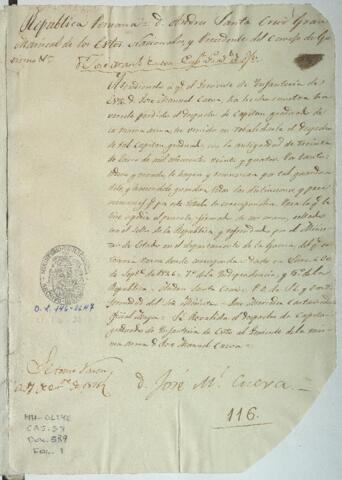 Republica Peruana = D. Andres Santa Cruz Gran
Mariscal de los Extos Nacionales, y Presidente del Consejo de Go-
vierno &a.
Atendiendo a q.e el Teniente de Infanteria de
Exto D. Jose Manuel Cueva, ha hecho constar ha-
verse perdido el despacho de Capitan graduado de
la misma arma, he venido en revalidarle el despacho
de tal Capitan graduado con la antigüedad de treinta
de de mil ochocientos veinte y quatro. Por tanto:
ordeno y mando le hayan y reconozcan por tal guardan-
dole, y haciendole guardar todas las distinciones y pree-
minencias q.e por este titulo le corresponden. Para lo q.e le
hice expedir el presente, firmado de mi mano, sellado
con el sello de la Republica, y refrendado por el Minis-
tro de Estado en el departamento de la Guerra del q.e se
tomará razon donde corresponda. Dado en Lima á
de Sept.e de 1826. 7.o de la Independencia, y 5.o de la
Republica = Andres Santa Cruz = P. O. de S. E. y con-
Oficial Mayor = Se Revalida el despacho de Capitan
graduado de Infanteria de Exto al Teniente de la mis-
ma arma D. Jose Manuel Cueva =
Se tomó razon
D. José M.l Cueva
116.
O.L. 146-2647
MH-OL146
CAJ-57
DOC-589
FOL-1